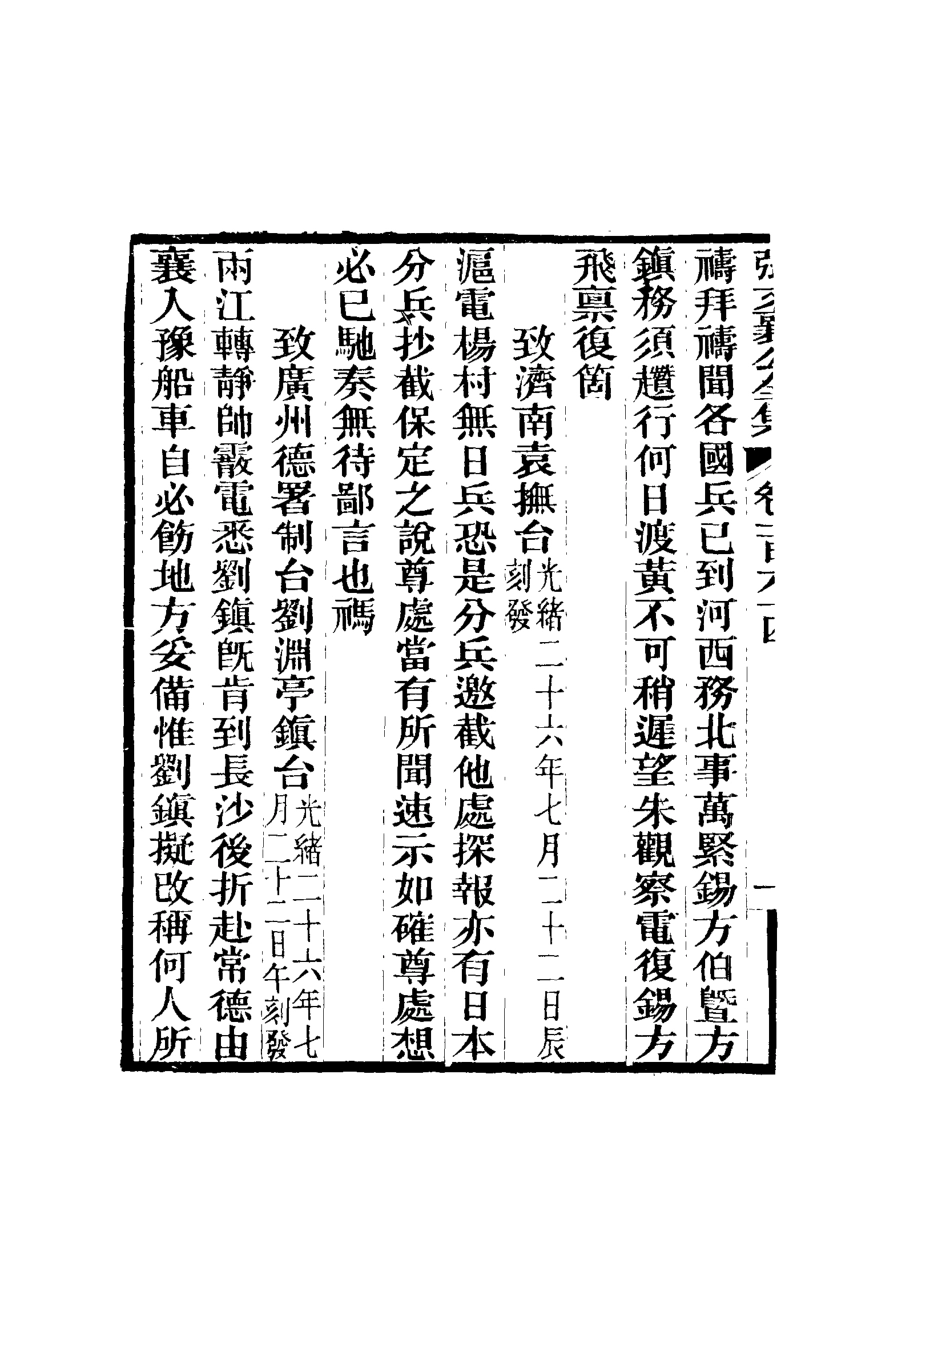 張文襄公全集 卷百六十四 一
禱拜禱聞各國兵已到河西務北事萬緊錫方伯暨方
鎮務須趲行何日渡黃不可稍遲望朱觀察電復錫方
飛稟復箇
致濟南袁撫台光緒二十六年七月二十二日辰
刻發
滬電楊村無日兵恐是分兵邀截他處探報亦有日本
分兵抄截保定之說尊處當有所聞速示如確尊處想
必已馳奏無待鄙言也禡
致廣州德署制台劉淵亭鎮台光緒二十六年七
月二十二日午刻發
兩江轉靜帥霰電悉劉鎮旣肯到長沙後折赴常德由
襄入豫船車自必飭地方妥備惟劉鎮擬改稱何人所